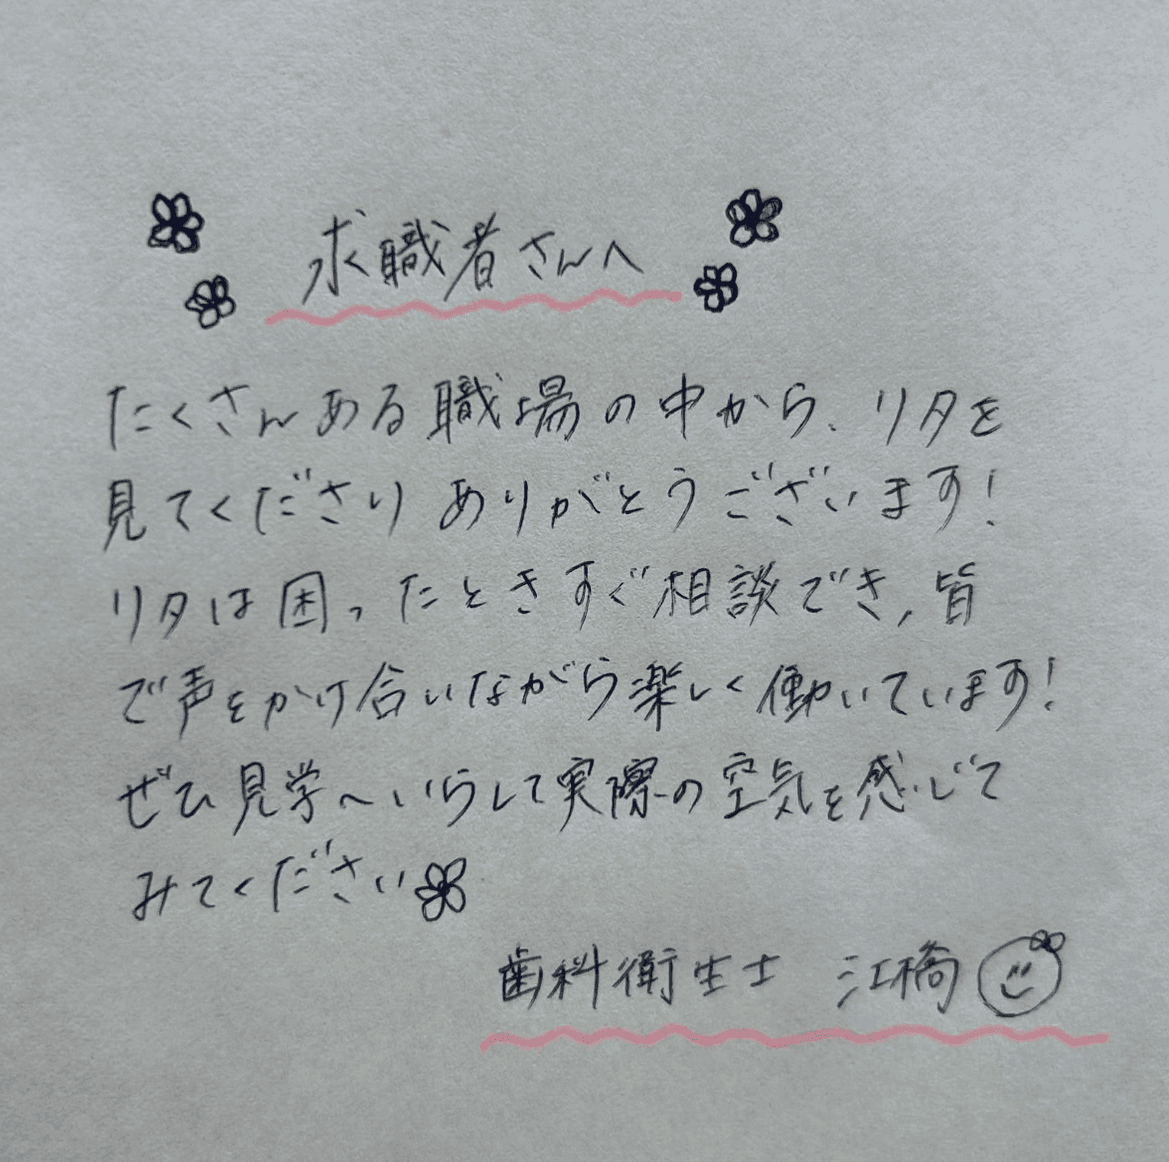 求職者さんへ
たくさんある職場の中から、リタを
見てくださりありがとうございます!
リタは困ったときすぐ相談でき、皆
で声をかけ合いながら楽しく働いています!
ぜひ見学へいらして実際の空気を感じて
みてください
歯科衛生士 江橋